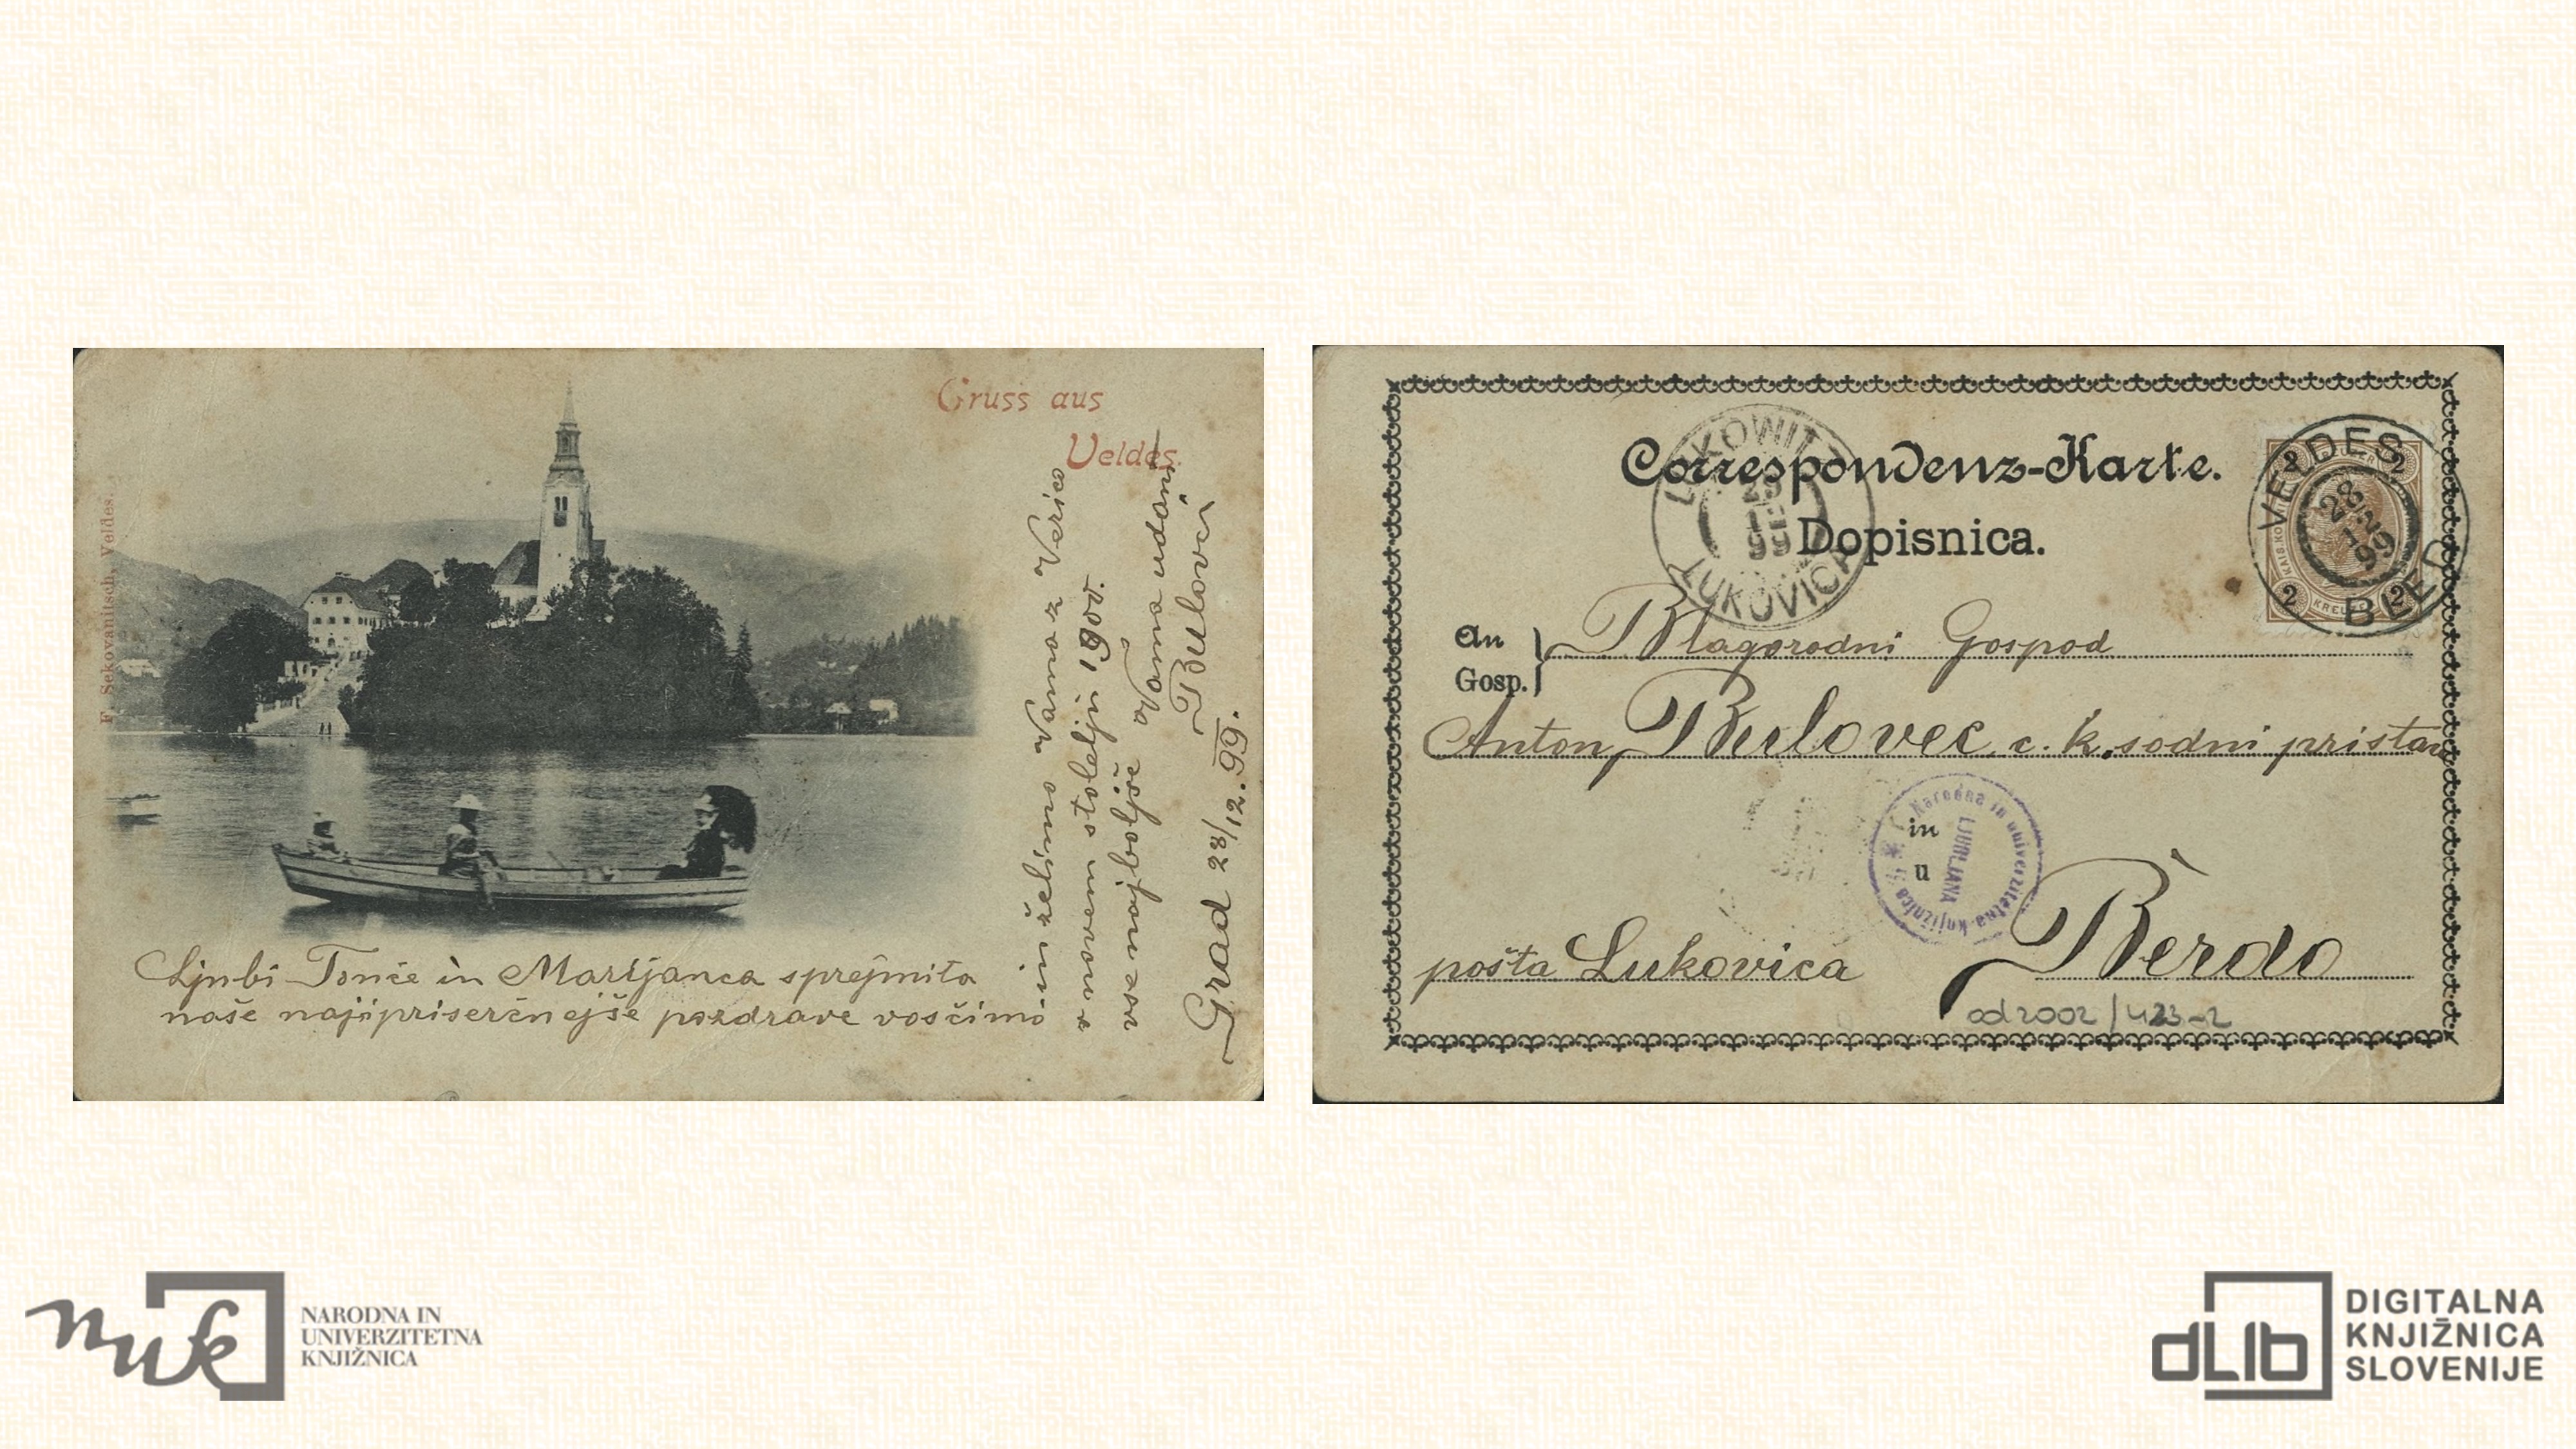 Gruss aus
Veldes.
F. Sekovanitsch, Veldes.
Ljubi Tonče in Marijanca sprejmita
naše najipriserčnejše pozdrave voščimo
in želimo Vama z Verico
v novem stoletju 1900.
vse najboljše
Vama udani
Bulovci
Grad 28/12. 99.
Correspondenz-Karte.
Dopisnica.
LUKOWITZ
LUKOVICA
99
VELDES
28 12 99
BLED
2 2
2 2
An
Gosp.
Blagorodni Gospod
Anton Bulovec c. k. sodni pristav
in
u
Narodna in univerzitetna knjižnica
LJUBLJANA
pošta Lukovica
Berdo
od 2002 / 423-2
nuk
NARODNA IN
UNIVERZITETNA
KNJIŽNICA
dLib
DIGITALNA
KNJIŽNICA
SLOVENIJE